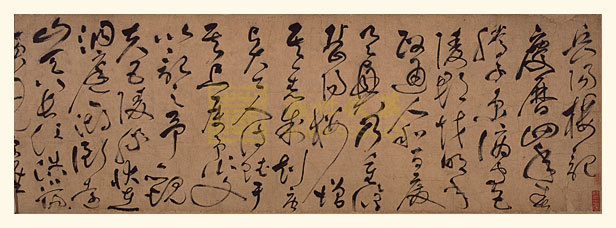 岳陽樓記
慶曆四年春
滕子京謫守巴
陵郡越明年
政通人和百廢
具興乃重脩
岳陽樓增
其舊制刻唐
賢今人詩賦于
其上屬予作文
以記之予觀
夫巴陵勝狀在
洞庭一湖銜遠
山吞長江浩浩